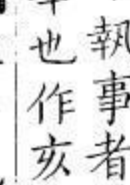 執事者
也作亥